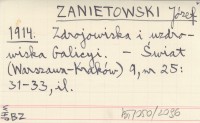 ZANIETOWSKI Józef
1914. Zdrojowiska i uzdro-
wiska Galicyi. – Świat
(Warszawa-Kraków) 9, nr 25:
31-33, il.
BZ